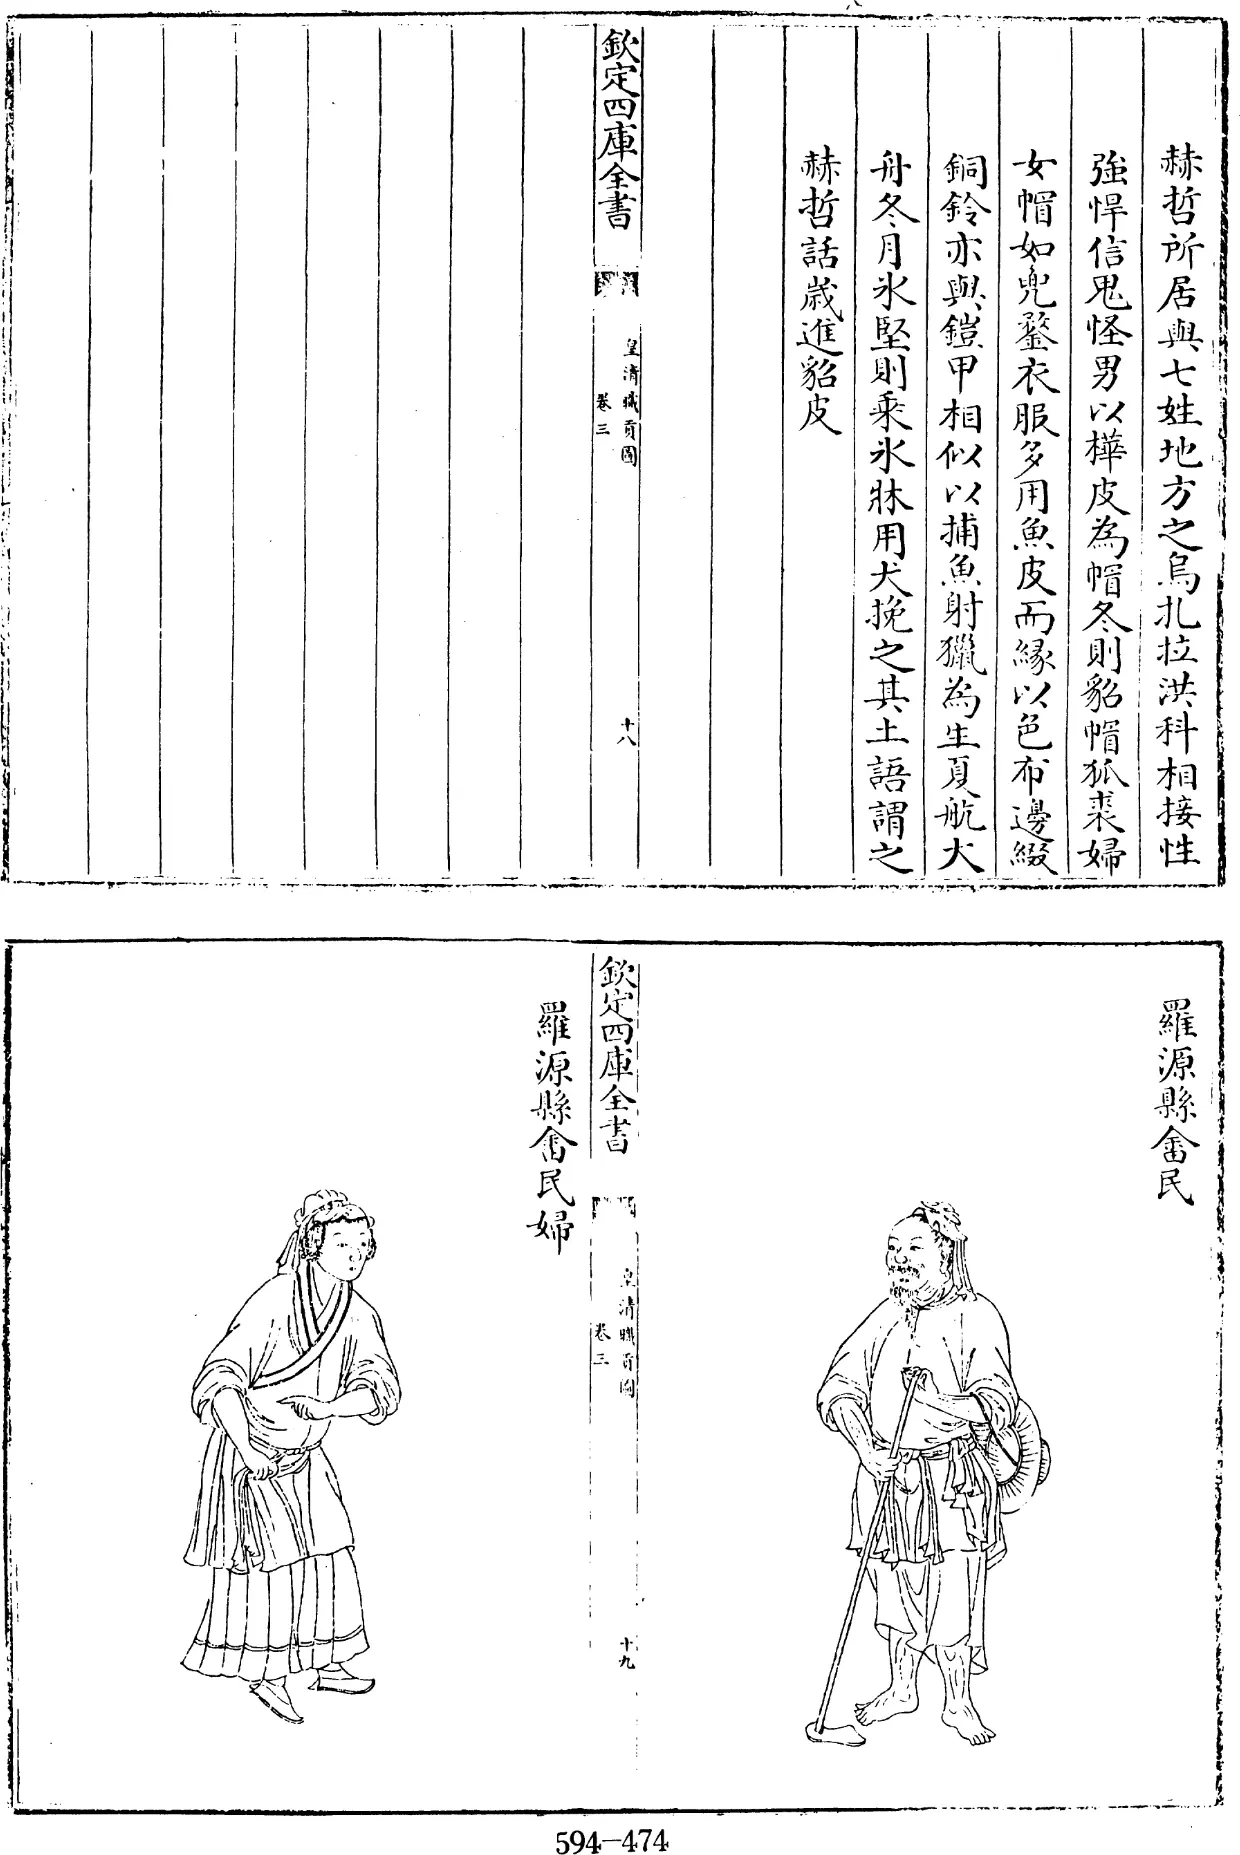 赫哲所居與七姓地方之烏扎拉洪科相接性
強悍信鬼怪男以樺皮為帽冬則貂帽狐裘婦
女帽如兜鍪衣服多用魚皮而緣以色布邊綴
銅鈴亦與鎧甲相似以捕魚射獵為生夏航大
舟冬月氷堅則乘氷牀用犬挽之其土語謂之
赫哲話歲進貂皮
欽定四庫全書
皇清職貢圖
卷三
十八
羅源縣畬民
欽定四庫全書
皇清職貢圖
卷三
十九
羅源縣畬民婦
594-474